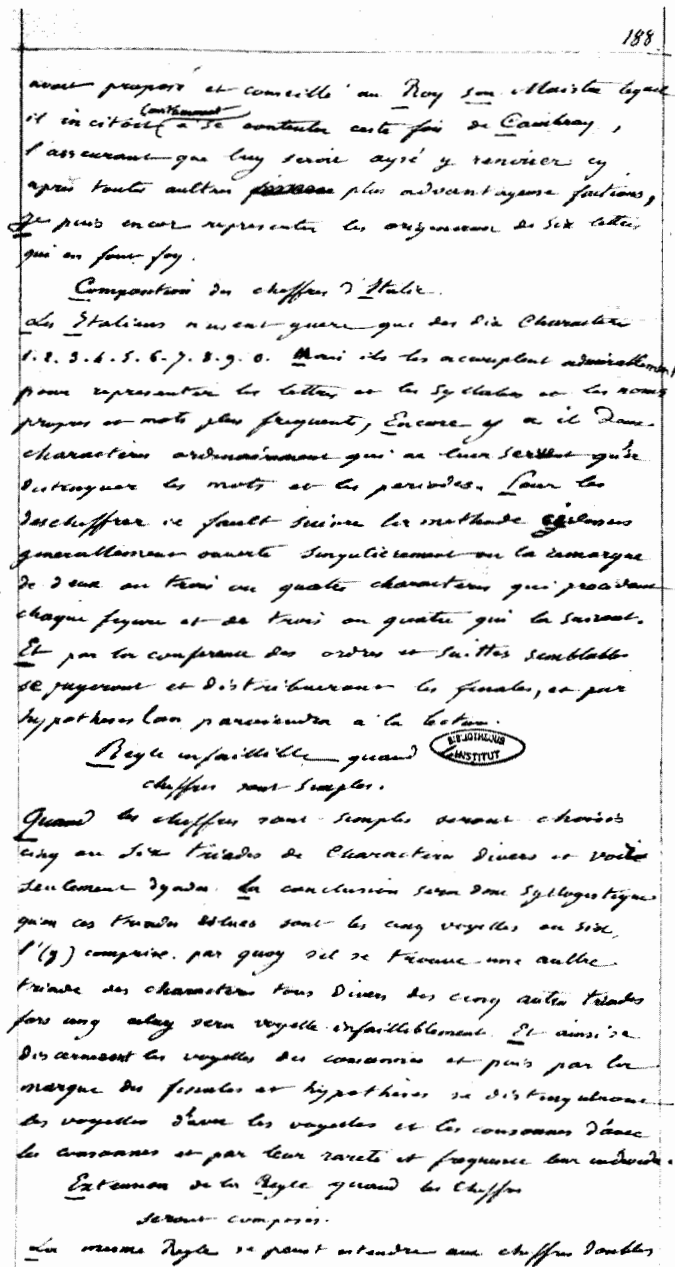 188
avoit proposé et conseillé au Roy son Maistre lequel
il incitoit (contemment) a se contenter ceste fois de Cambray,
l'asseurant que luy seroit aysé y renvier cy
apres toutes aultres plus advantageuse factions,
Je puis encor representer les origineaux de six lettres
qui en font foy.
Composition des cheffres d'Italie.
Les Italiens n'usent guere que des dix Characteres
1.2.3.4.5.6.7.8.9.0. Mais ils les accouplent admirablement
pour representer les lettres et les syllabes et les noms
propres et mots plus frequent, Encore y a il deux
characteres ordinairement qui ne leur servent qu'a
distinguer les mots et les periodes. Pour les
deschiffrer il fault suivre la methode cy dessus
generallement ouverte singulierement en la remarque
de deux ou trois ou quatre characteres qui precedent
chaque figure et de trois ou quatre qui la suivent.
Et par la conference des ordres et suittes semblables
se jugeront et distribueront les finales, et par
hypotheses l'on parviendra a la lecture.
BIBLIOTHEQUE
INSTITUT
Regle infaillible quand
cheffres sont simples.
Quand les cheffres sont simples seront choisis
cinq ou six triades de Characteres divers et voire
seulement dyades. La conclusion sera donc syllogistique
qu'en ces triades esleues sont les cinq voyelles ou six,
l'(y) comprise. par quoy s'il se trouve une aultre
triade des characteres tous divers des cinq autres triades
fors ung celuy sera voyelle infailliblement. Et ainsi se
discerneront les voyelles des consonnes et puis par la
marque des finales et hypotheses se distingueront
les voyelles d'avec les voyelles et les consonnes d'avec
les consonnes et par leur rareté et frequence leur individu.
Extension de la Regle quand les Cheffres
seront composés.
La mesme Regle se peust estendre aux cheffres doubles